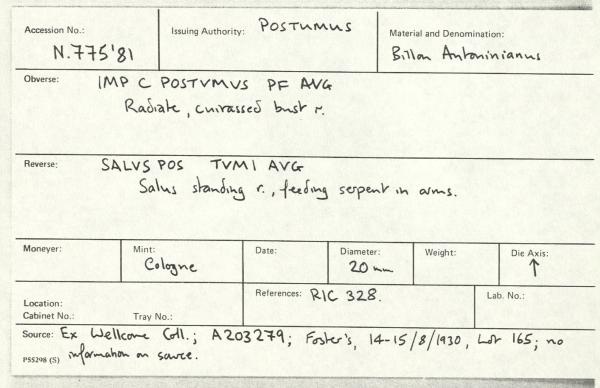 Accession No.: N.775'81
Issuing Authority: POSTUMUS
Material and Denomination: Billon Antoninianus
Obverse: IMP C POSTVMVS PF AVG
Radiate, cuirassed bust r.
Reverse: SALVS POS TVMI AVG
Salus standing r., feeding serpent in arms.
Moneyer:
Mint: Cologne
Date:
Diameter: 20 mm
Weight:
Die Axis: ↑
Location:
Cabinet No.: Tray No.:
References: RIC 328.
Lab. No.:
Source: Ex Wellcome Coll.; A203279; Foster's, 14-15/8/1930, Lot 165; no
PS5298 (S) information on source.